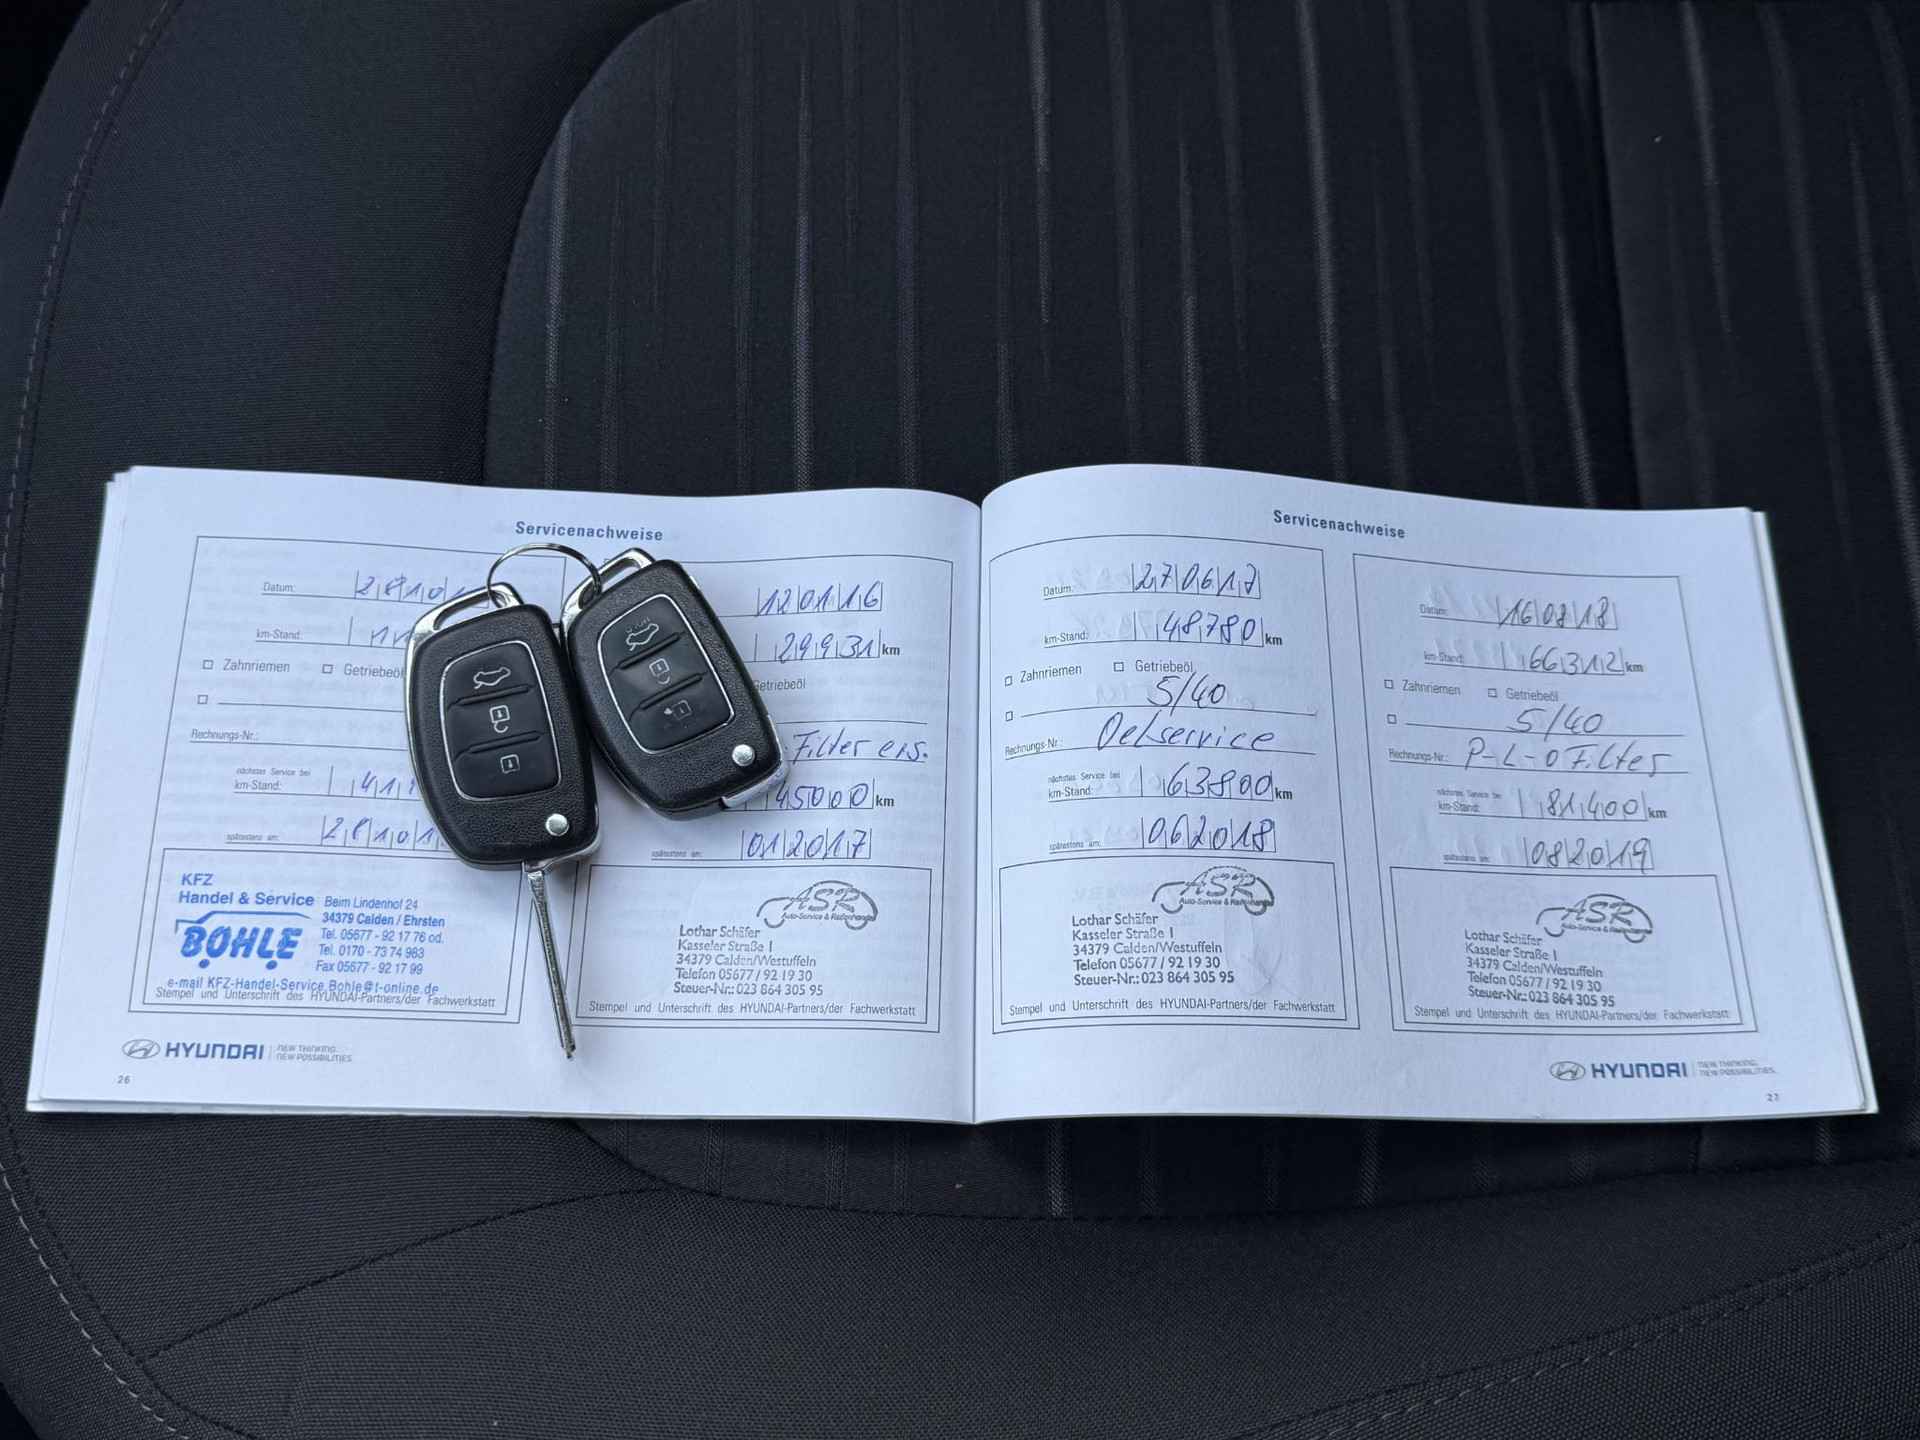 Servicenachweise
Datum:
km-Stand:
Zahnriemen Getriebeöl
Rechnungs-Nr.:
nächstes Service bei
km-Stand:
spätestens am:
KFZ
Handel & Service
BOHLE
Beim Lindenhof 24
34379 Calden / Ehrsten
Tel. 05677 - 92 17 76 od.
Tel. 0170 - 73 74 983
Fax 05677 - 92 17 99
e-mail KFZ-Handel-Service.Bohle@t-online.de
Stempel und Unterschrift des HYUNDAI-Partners/der Fachwerkstatt
120116
29931 km
Getriebeöl
Filter ers.
45000 km
spätestens am: 012017
ASR
Auto-Service & Reifenhandel
Lothar Schäfer
Kasseler Straße 1
34379 Calden/Westuffeln
Telefon 05677 / 92 19 30
Steuer-Nr.: 023 864 305 95
Stempel und Unterschrift des HYUNDAI-Partners/der Fachwerkstatt
HYUNDAI NEW THINKING.
NEW POSSIBILITIES.
26
Servicenachweise
Datum: 270617
km-Stand: 48780 km
Zahnriemen Getriebeöl
5/40
Rechnungs-Nr.: Oelservice
nächstes Service bei
km-Stand: 63800 km
spätestens am: 062018
ASR
Auto-Service & Reifenhandel
Lothar Schäfer
Kasseler Straße 1
34379 Calden/Westuffeln
Telefon 05677 / 92 19 30
Steuer-Nr.: 023 864 305 95
Stempel und Unterschrift des HYUNDAI-Partners/der Fachwerkstatt
Datum: 160818
km-Stand: 66312 km
Zahnriemen Getriebeöl
5/40
Rechnungs-Nr.: P-L-O Filter
nächstes Service bei
km-Stand: 81400 km
spätestens am: 082019
ASR
Auto-Service & Reifenhandel
Lothar Schäfer
Kasseler Straße 1
34379 Calden/Westuffeln
Telefon 05677 / 92 19 30
Steuer-Nr.: 023 864 305 95
Stempel und Unterschrift des HYUNDAI-Partners/der Fachwerkstatt
HYUNDAI NEW THINKING.
NEW POSSIBILITIES.
27